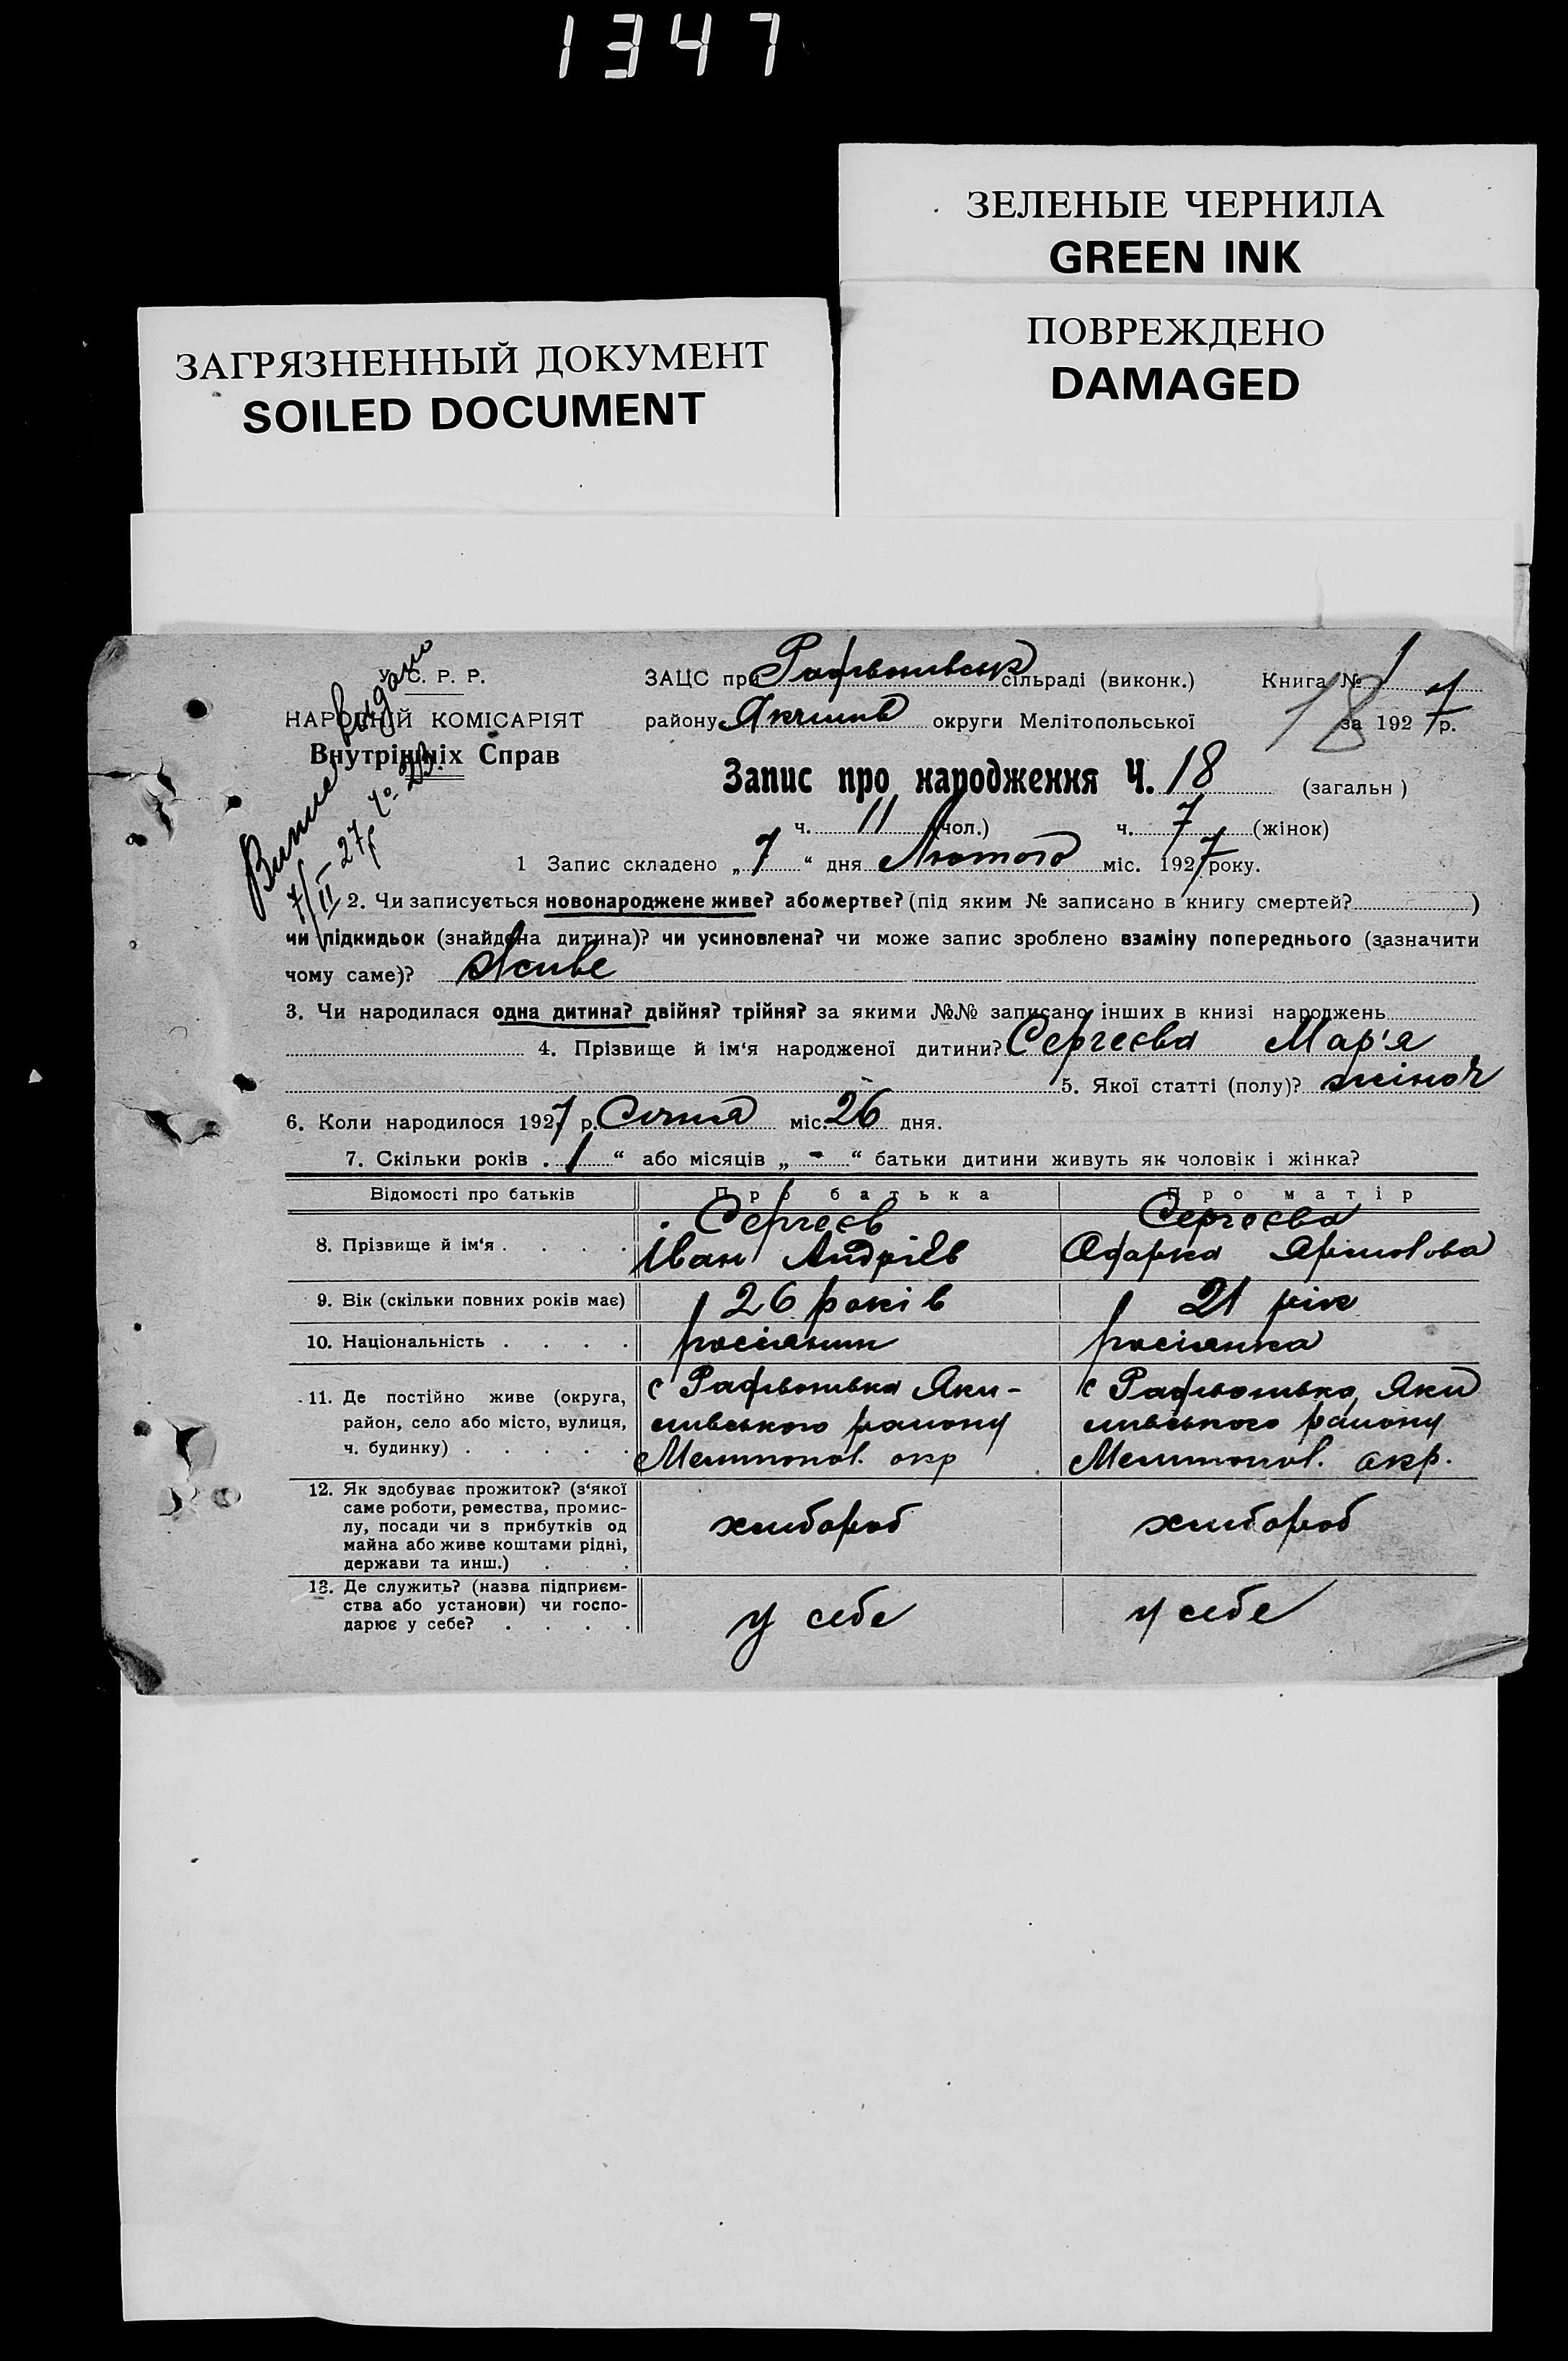 1347
ЗЕЛЕНЫЕ ЧЕРНИЛА
GREEN INK
ПОВРЕЖДЕНО
DAMAGED
ЗАГРЯЗНЕННЫЙ ДОКУМЕНТ
SOILED DOCUMENT
У. С. Р. Р.
НАРОДНІЙ КОМІСАРІЯТ
Внутрішніх Справ
видано
7/II 27р
ЗАЦС при Рафвонивськ сільраді (виконк.) Книга № 1
району Якчимів округи Мелітопольської за 1927 р.
18
Запис про народження Ч. 18 (загальн)
ч. 11 (чол.) ч. 7 (жінок)
1 Запис складено „7“ дня Лютого міс. 1927 року.
2. Чи записується новонароджене живе? або мертве? (під яким № записано в книгу смертей? )
чи підкидьок (знайдена дитина)? чи усиновлена? чи може запис зроблено взаміну попереднього (зазначити
чому саме)? Живе
3. Чи народилася одна дитина? двійня? трійня? за якими №№ записано інших в книзі народжень
4. Прізвище й ім‘я народженої дитини? Сергєєва Мар'я
5. Якої статті (полу)? жіноч
6. Коли народилося 1927 р. Січня міс. 26 дня.
7. Скільки років . 1 “ або місяців „ - “ батьки дитини живуть як чоловік і жінка?
Відомості про батьків Про батька Про матір
8. Прізвище й ім‘я . . . . Сергєєв Іван Андріїв Сергєєва Одарка
9. Вік (скільки повних років має) 26 років 21 рік
10. Національність . . . . росіянин росіянка
11. Де постійно живе (округа, с Рафвонивка Яки- с Рафвонивка Яки
район, село або місто, вулиця, мивського району мивського району
ч. будинку) . . . . . Мелитопол. окр Мелитопол. окр.
12. Як здобуває прожиток? (з‘якої
саме роботи, ремества, промис-
лу, посади чи з прибутків од хлибороб хлибороб
майна або живе коштами рідні,
держави та инш.) . . .
13. Де служить? (назва підприєм-
ства або установи) чи госпо- у себе у себе
дарює у себе? . . . .